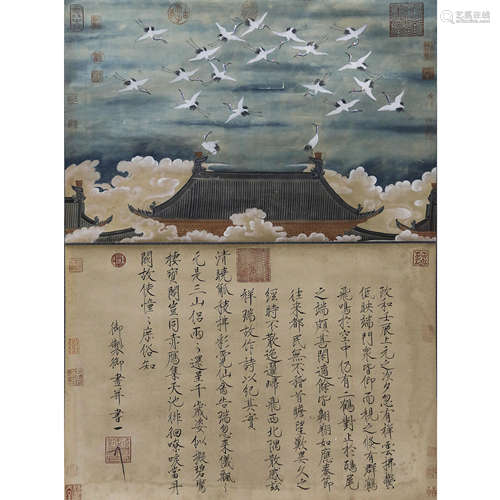 政和壬辰上元之次夕忽有祥雲拂鬱
低映端門眾皆仰而視之倏有群鶴
飛鳴於空中仍有二鶴對止於鴟尾
之端頗甚閑適餘皆翱翔如應奏節
往來都民無不稽首瞻望歎異久之
經時不散迤邐歸飛西北隅散感茲
祥瑞故作詩以紀其實
清曉觚稜拂彩霓仙禽告瑞忽來儀飄〻
元是三山侶兩〻還呈千歲姿似擬碧鸞
棲寶閣豈同赤雁集天池徘徊嘹唳當丹
闕故使憧〻庶俗知
御製御畫并書
艺狐在线